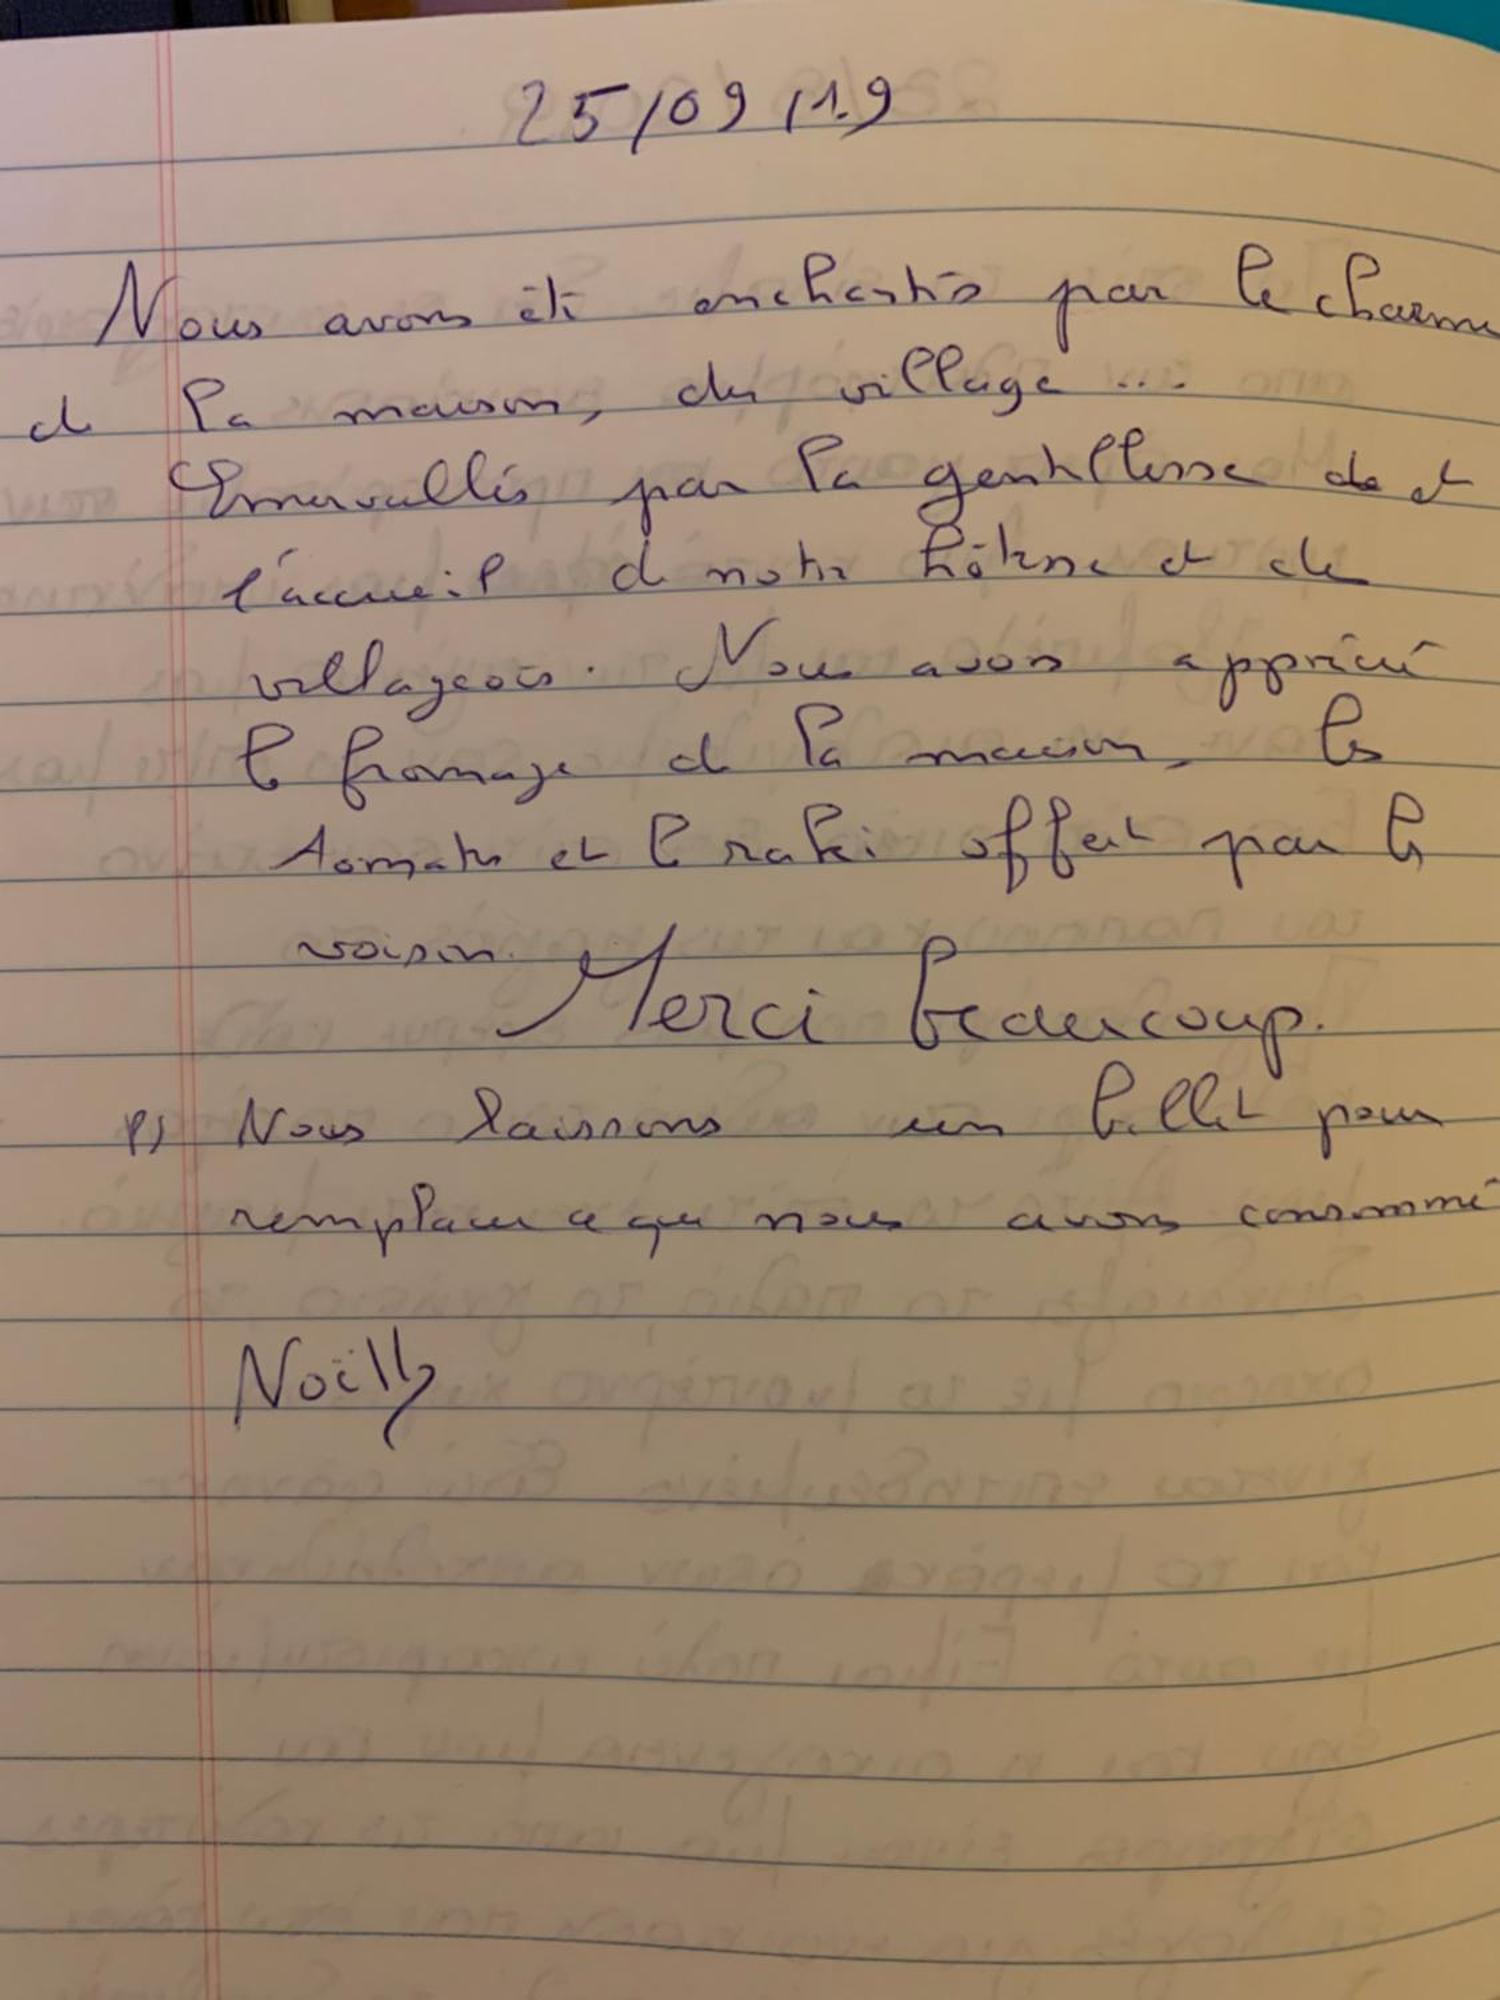 25/09/19
Nous avons été enchantés par le charme
de la maison, du village ...
Emerveillés par la gentillesse de et
l'accueil de notre hôtesse et de
villageois. Nous avons apprécié
le fromage de la maison, les
tomates et le raki offert par le
voisin.
Merci beaucoup.
PS Nous laissons un billet pour
remplacer ce que nous avons consommé
Noëlly